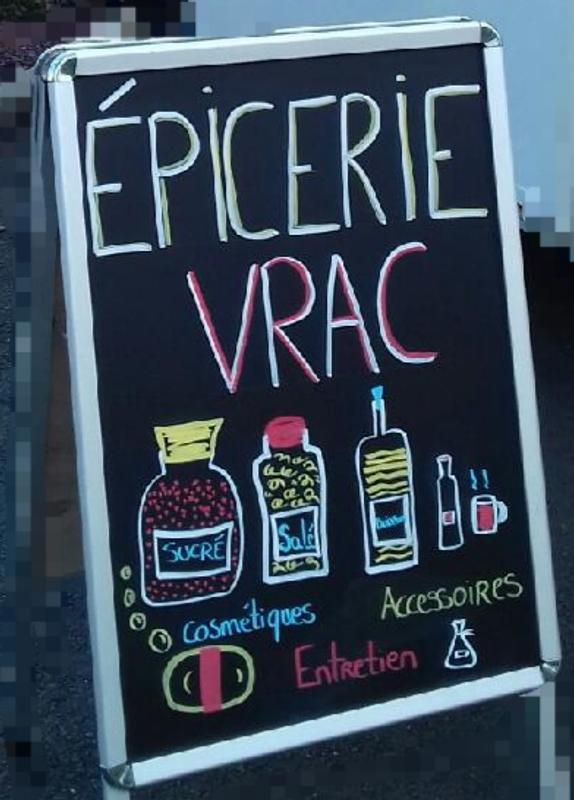 ÉPICERIE
VRAC
SUCRÉ
Salé
Boisson
Accessoires
cosmétiques
Entretien